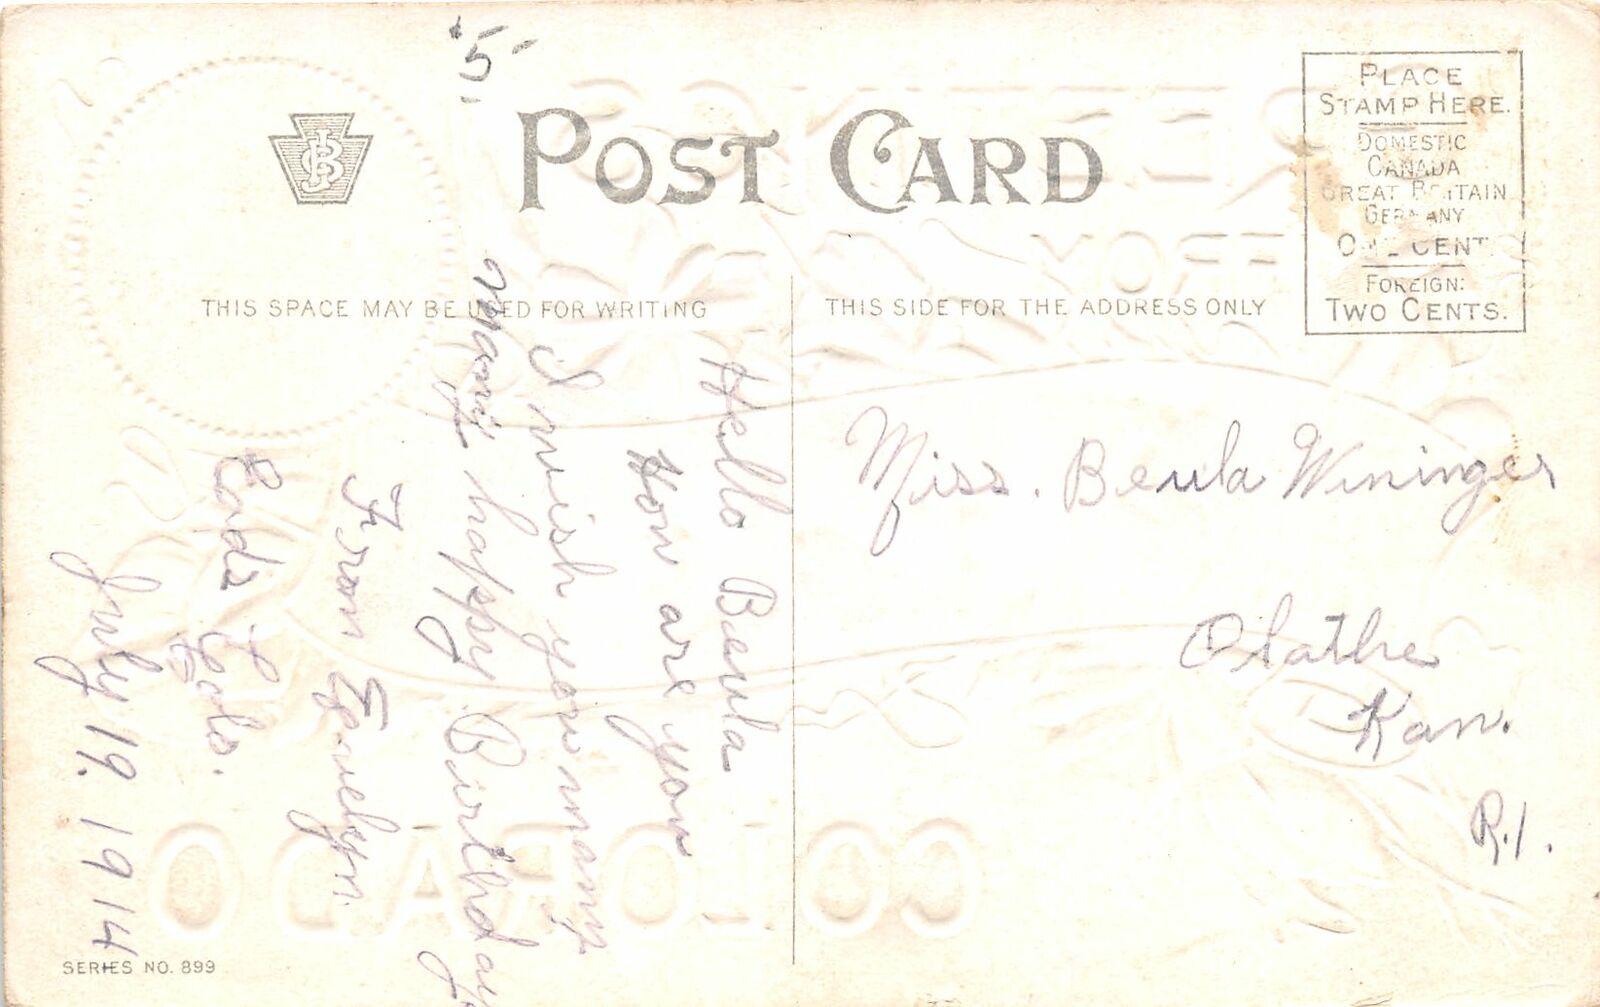 '5'
JPB
POST CARD
PLACE
STAMP HERE.
DOMESTIC
CANADA
GREAT BRITAIN
GERMANY
ONE CENT.
FOREIGN:
TWO CENTS.
THIS SPACE MAY BE USED FOR WRITING
THIS SIDE FOR THE ADDRESS ONLY
Hello Beula
How are you
I wish you many
many happy Birthdays
From Evelyn.
Eads Colo.
July 19. 1914
Miss. Beula Wininger
Olathe
Kan.
R.1.
GREETINGS
FROM
COLORADO
SERIES NO. 899